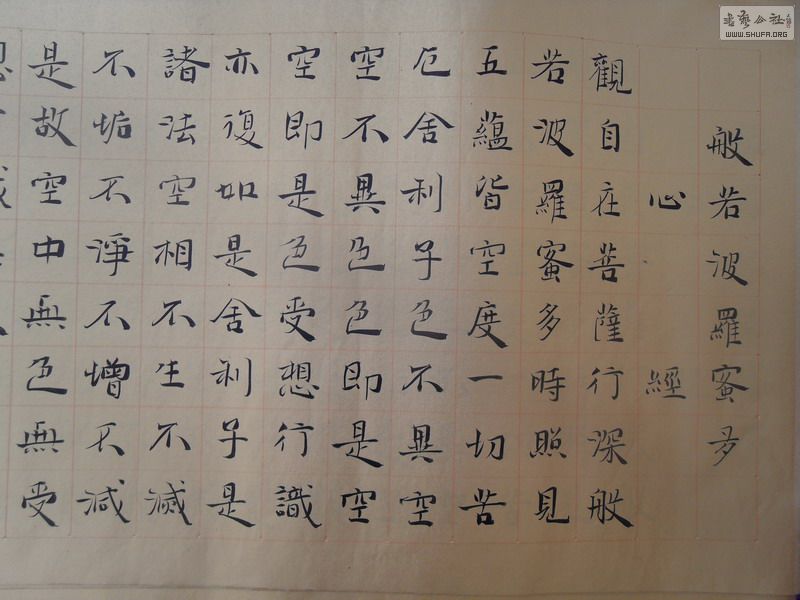 般若波羅蜜多
心經
觀自在菩薩行深般
若波羅蜜多時照見
五蘊皆空度一切苦
厄舍利子色不異空
空不異色色即是空
空即是色受想行識
亦復如是舍利子是
諸法空相不生不滅
不垢不淨不增不減
是故空中無色無受
書藝公社
WWW.SHUFA.ORG